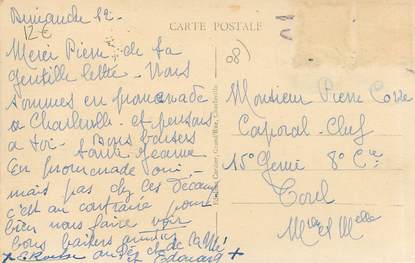 Dimanche 12.
12€
CARTE POSTALE
08
Merci Pierre de ta
gentille lettre. Nous
sommes en promenade
à Charleville et pensons
à toi. Bons baisers
tante Jeanne
En promenade oui,
mais pas chez ces
c'est au contraire pour
bien nous faire voir
Bons baisers
Edouard +
Monsieur Pierre
Caporal-Chef
15e Génie 8e Cie
Toul